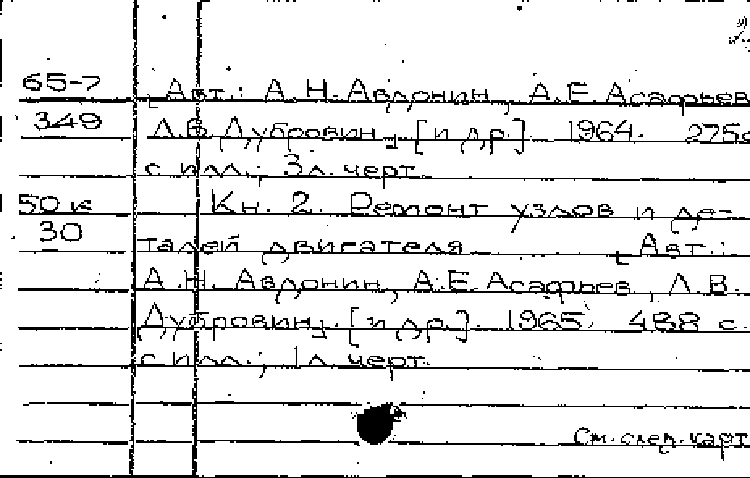 65-7 [Авт.: А.Н. Авдонин, А.Е Асафьев
349 Л.В Дубровин, [и др]. 1964. 275с
с илл.; 3 л. черт.
50 к Кн. 2. Ремонт узлов и де-
30 талей двигателя [Авт.:
А.Н. Авдонин, А.Е. Асафьев, Л.В.
Дубровин], [и др]. 1965. 488 с.
с илл.; 1 л. черт.
См. след. карт